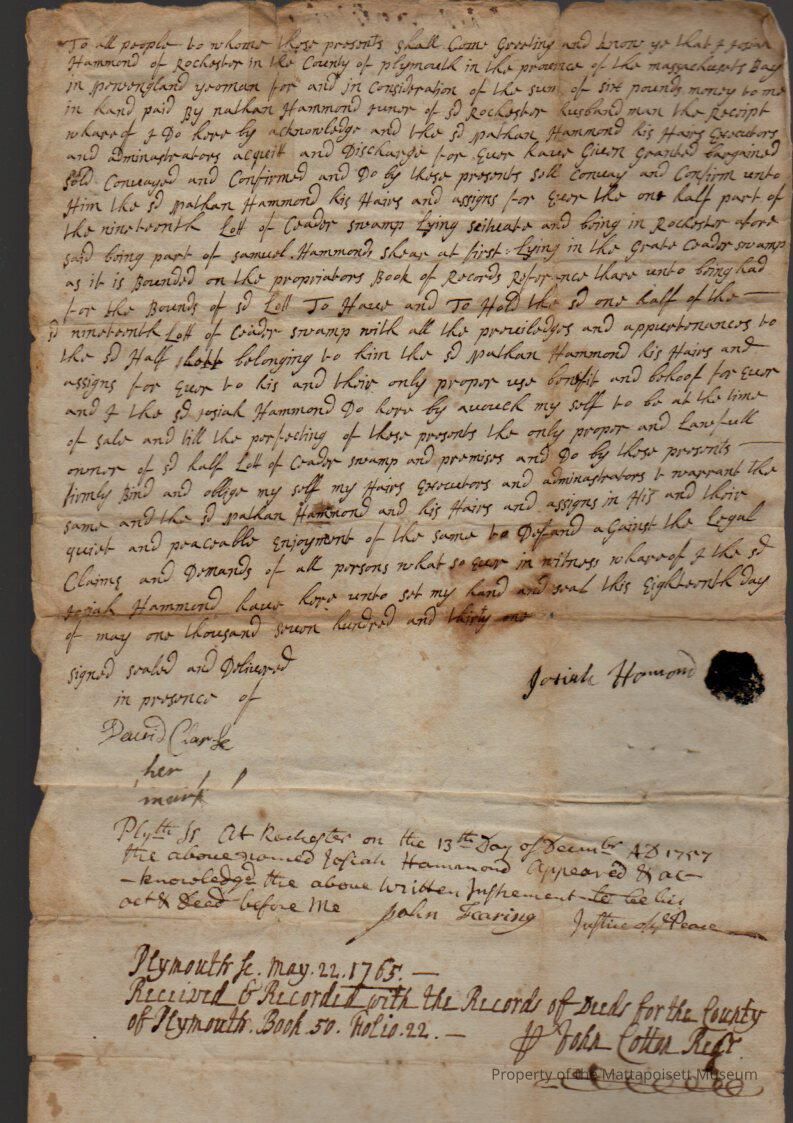 To all people to whome these presents shall Come Greeting and know ye that I Josiah
Hammond of Rochester in the County of plymouth in the province of the massachusets Bay
in Newengland yeoman for and in Consideration of the sum of six pounds money to me
in hand paid By nathan Hammond Juner of sd Rochester husband man the Receipt
whareof I Do here by acknowledge and the sd Nathan Hammond his Hairs Executors
and administrators acquitt and Discharge for Ever have Given Granted bargained
sold Convayed and Confirmed and Do by these presents sell Convay and Confirm unto
Him the sd Nathan Hammond his Hairs and assigns for Ever the one half part of
the nineteenth Lott of Ceader swamp Lying scituate and being in Rochester afore
said being part of samuel Hammonds shear at first Lying in the Grate Ceader swamp
as it is Bounded on the propriators Book of Records Referance thare unto being had
for the Bounds of sd Lott To Have and To Hold the sd one half of the
sd nineteenth Lott of Ceader swamp with all the previledges and appurtenances to
the sd Half Lott belonging to him the sd Nathan Hammond his Hairs and
assigns for Ever to his and their only proper use benefit and behoof for Ever
and I the sd Josiah Hammond Do here by avouch my self to be at the time
of sale and till the perfecting of these presents the only proper and Lawfull
owner of sd half Lott of Ceader swamp and premises and Do by these presents
firmly Bind and oblige my self my Hairs Executors and administrators to warrant the
same and the sd Nathan Hammond and his Hairs and assigns in His and their
quiet and peaceable Enjoyment of the same to Defand against the Legal
Claims and Demands of all persons what so Ever in witness whareof I the sd
Josiah Hammond have here unto set my hand and seal this Eighteenth day
of may one thousand seven hundred and thirty one
signed sealed and Delivered
in presence of
Josiah Hamond
David Clarke
her
mark
Plyth ss At Rochester on the 13th Day of Decembr AD 1757
the above named Josiah Hammond Appeared & ac-
-knowledged the above written Instrement to be his
act & Deed before Me John Fearing Justice of Peace
Plymouth sc. May. 22. 1765. —
Received & Recorded with the Records of Deeds for the County
of Plymouth. Book. 50. Folio. 22. —
John Cotton Regr.
Property of the Mattapoisett Museum